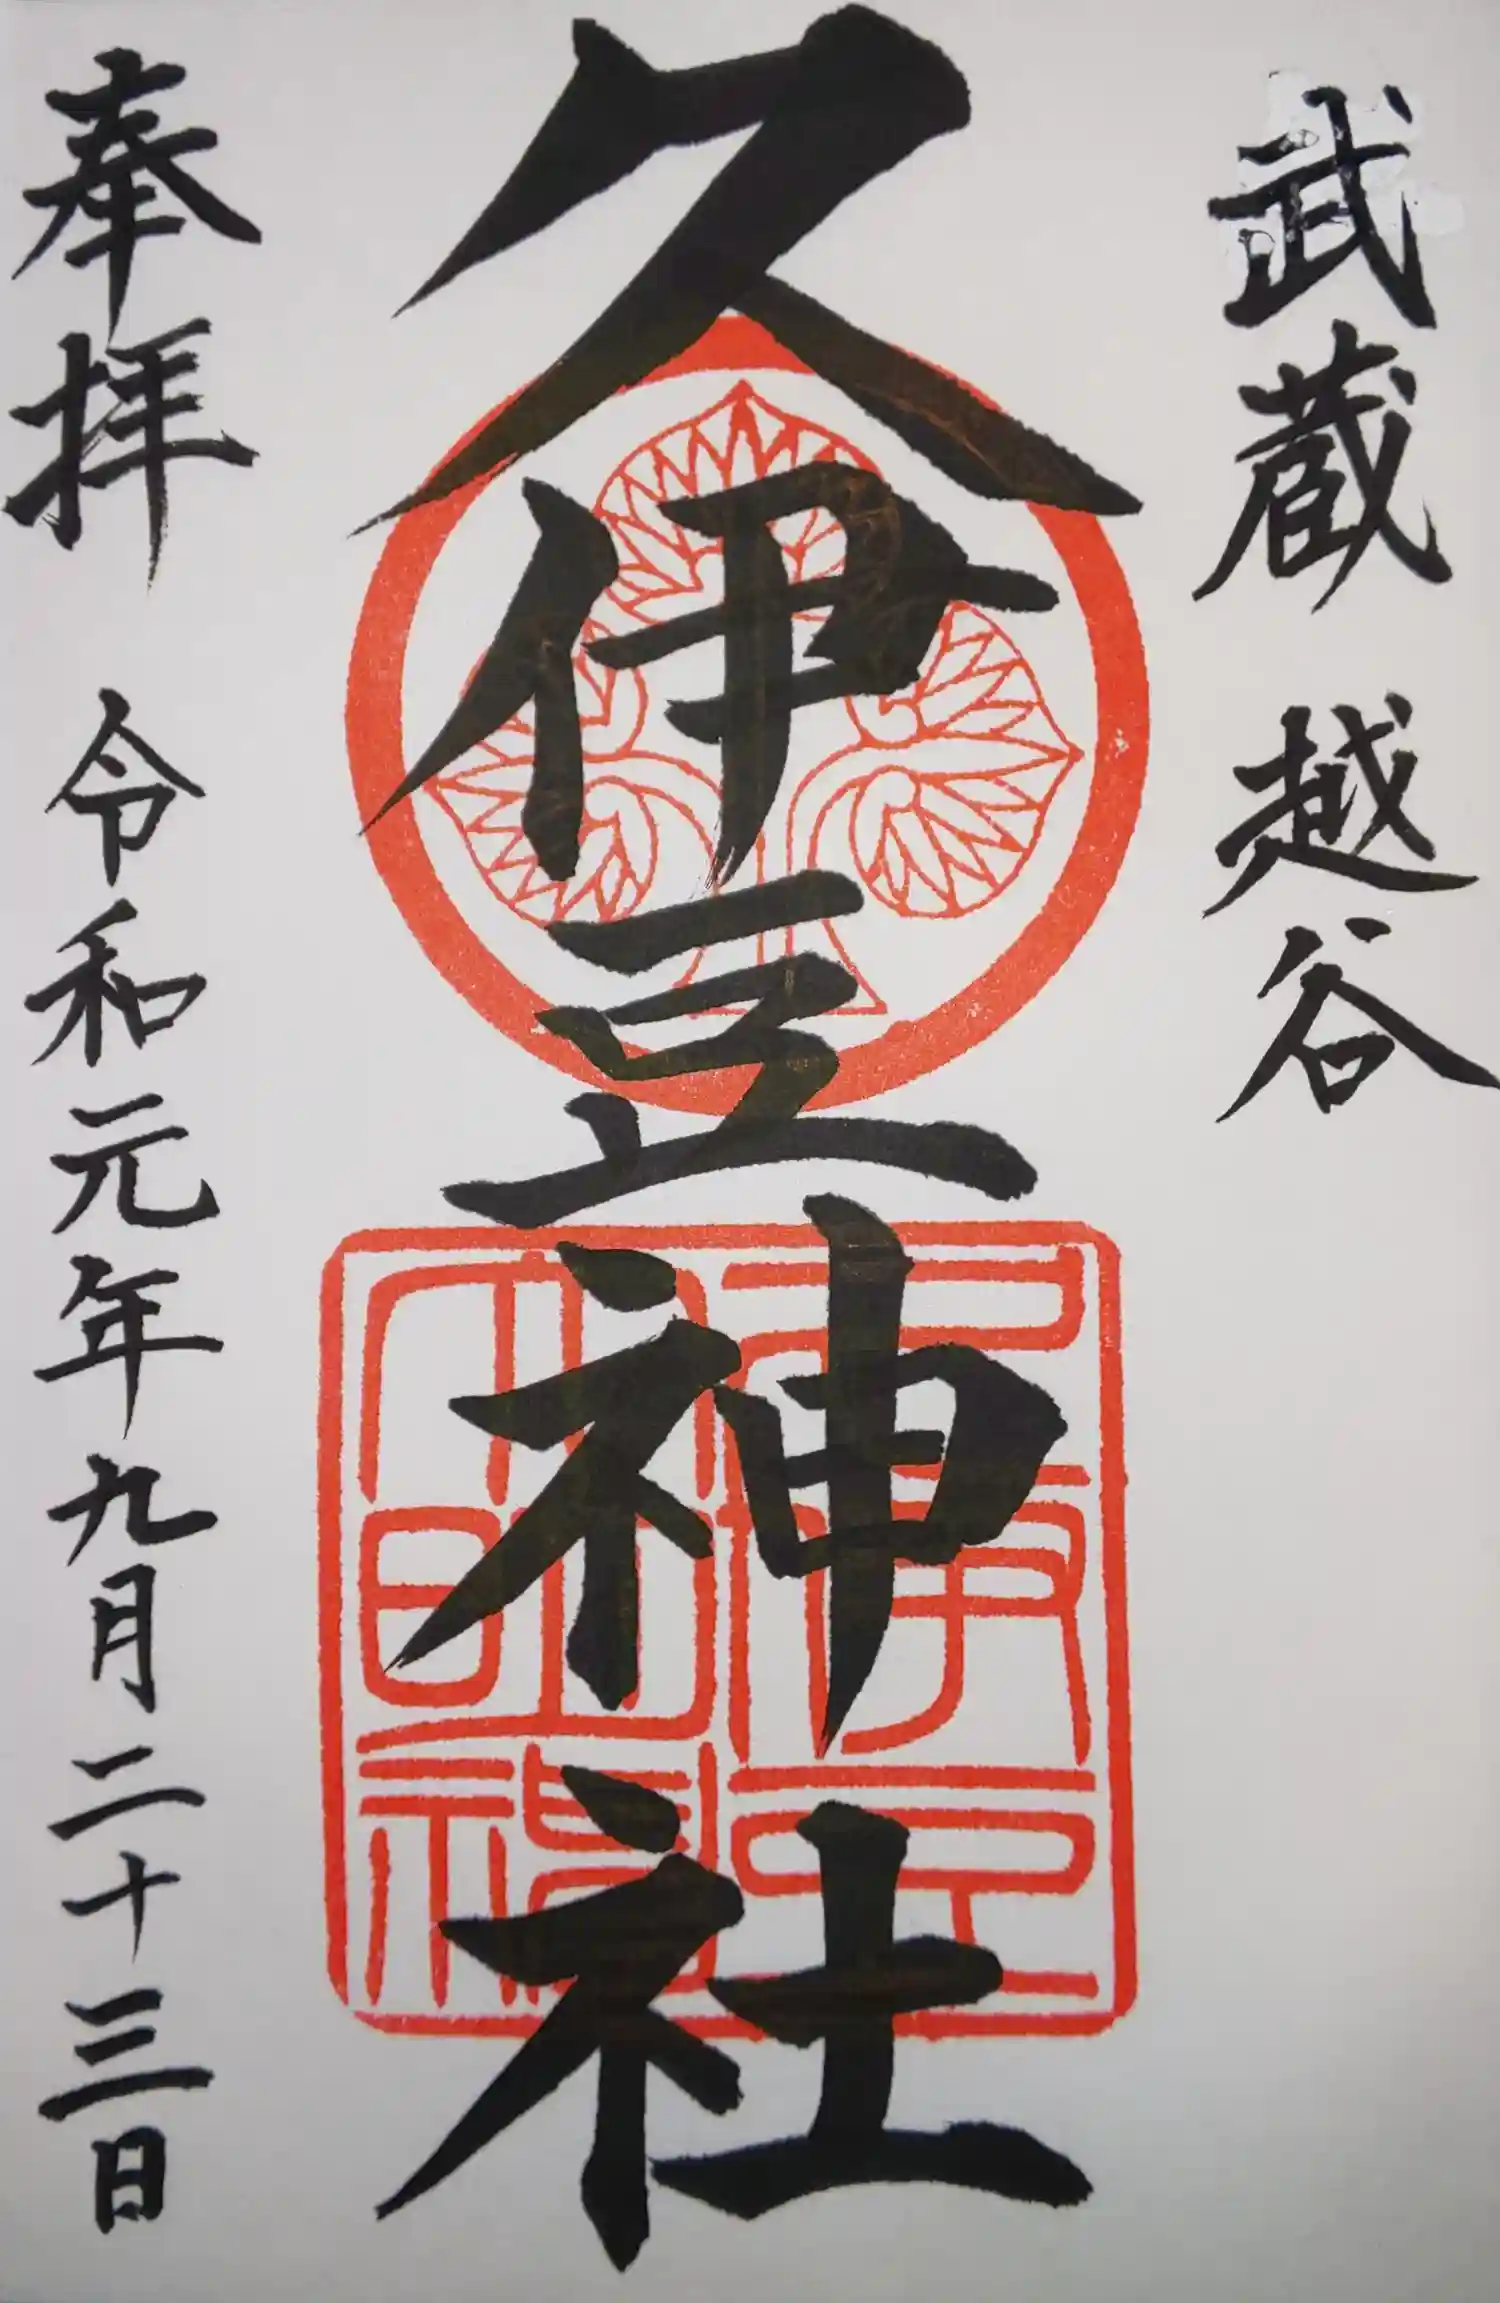 武蔵 越谷
久伊豆神社
奉拝 令和元年九月二十三日